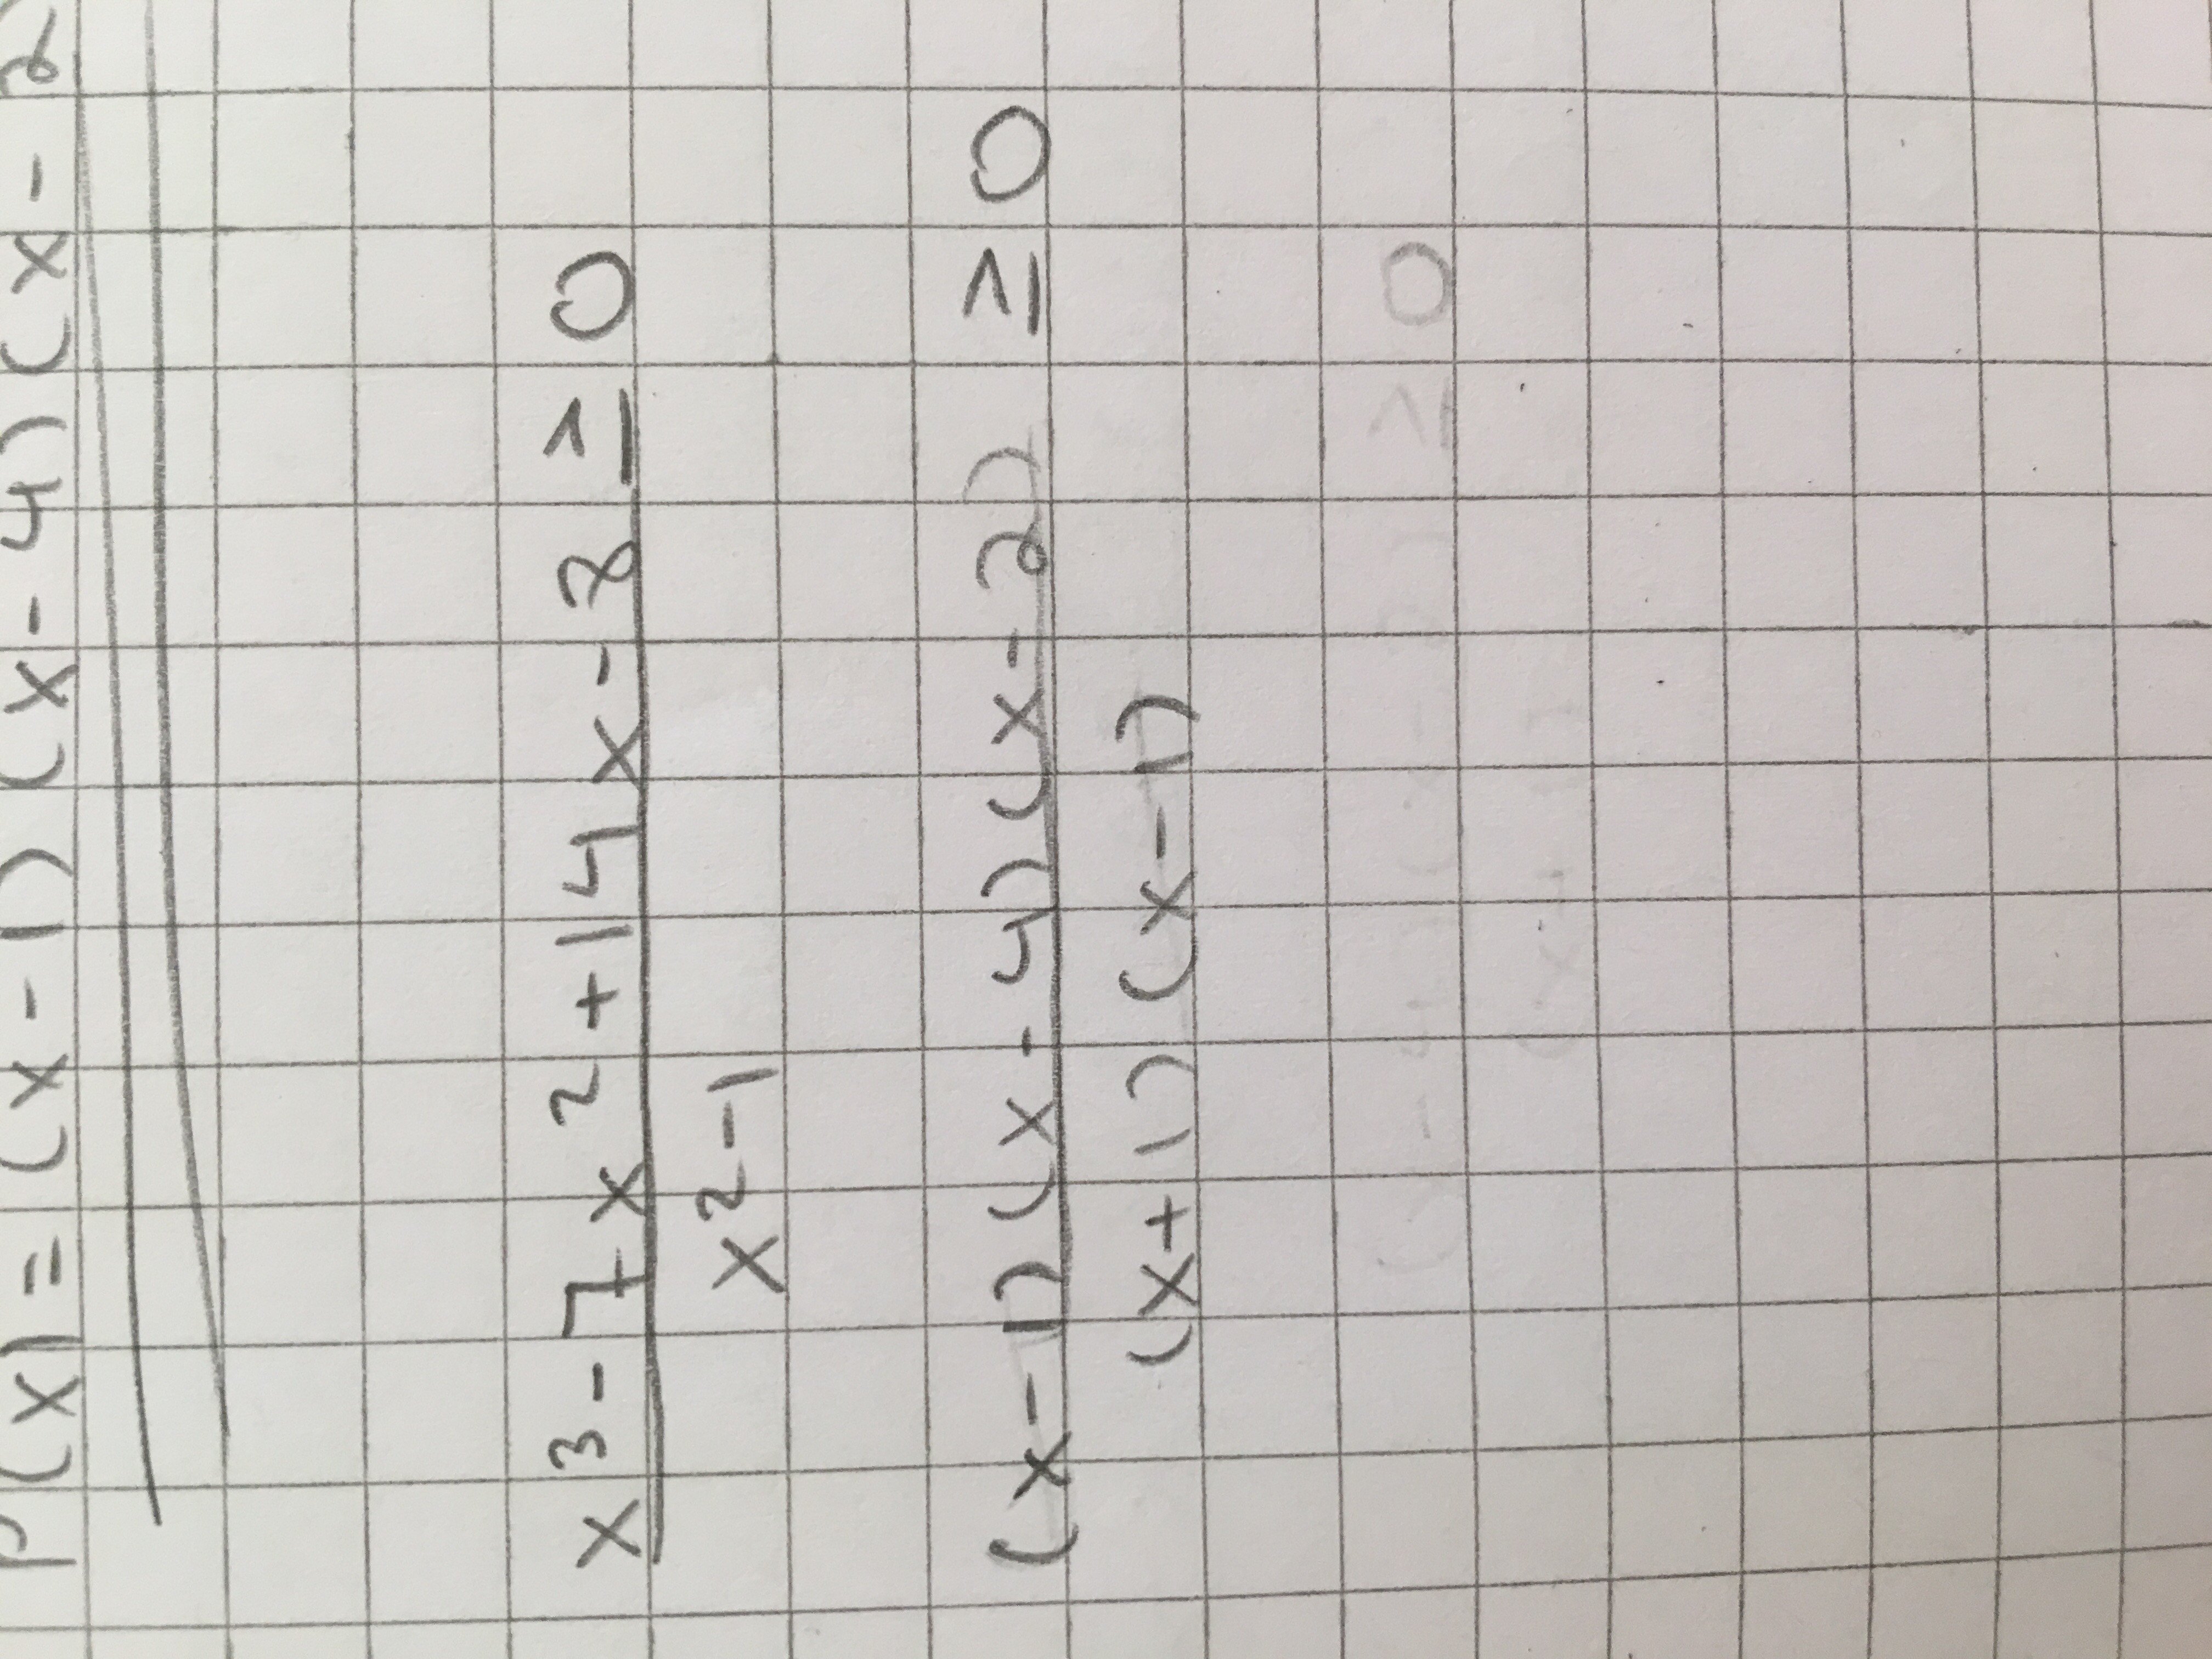 P(x) = (x - 1) (x - 4) (x - 2
x³ - 7x² + 14x - 8 ≥ 0
x² - 1
(x - 1) (x - 4) (x - 2) ≥ 0
(x + 1) (x - 1)
≥ 0